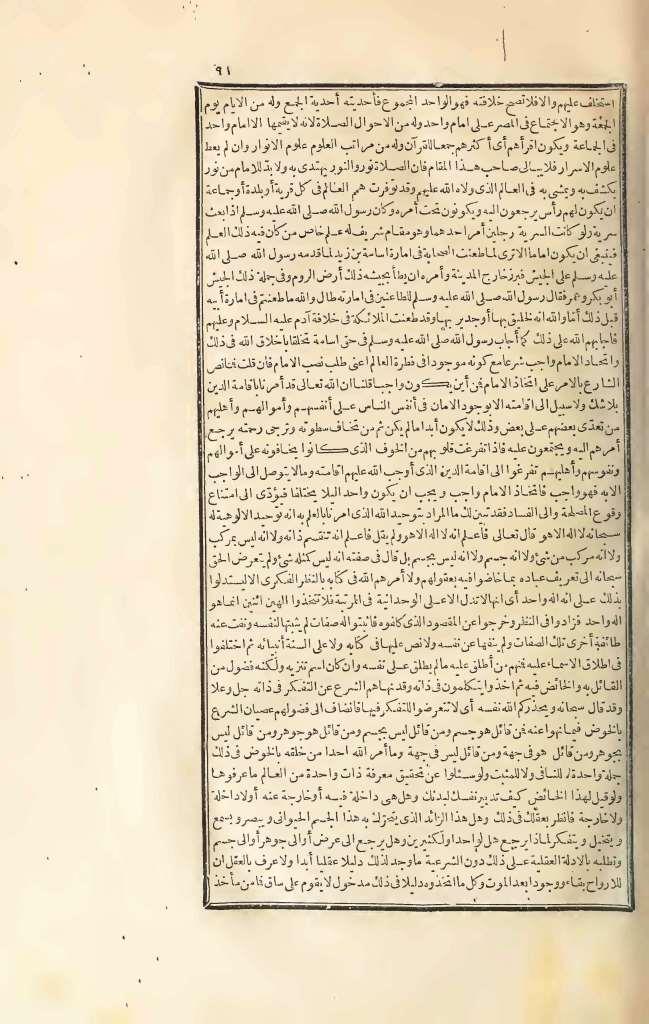 ٩١
استخلف عليهم والا فلا تصح خلافته فهو الواحد المجموع فأحديته أحدية الجمع وله من الايام يوم
الجمعة وهو الاجتماع فى المصر على امام واحد وله من الاحوال الصلاة لانه لا يقيمها الا امام واحد
فى الجماعة ويكون اقرأهم أى أكثرهم جمعا للقرآن وله من مراتب العلوم علوم الانوار وان لم يعط
علوم الاسرار فلا يبالى صاحب هذا المقام فان الصلاة نور والنور يهتدى به ولا بد للامام من نور
يكشف به ويمشى به فى العالم الذى ولاه الله عليهم وقد توفرت همم العالم فى كل قرية أو بلدة أو جماعة
ان يكون لهم رأس يرجعون اليه ويكونون تحت أمره وكان رسول الله صلى الله عليه وسلم اذا بعث
سرية ولو كانت السرية رجلين أمر احدهما وهو مقام شريف له علم خاص من كان فيه ذلك العلم
فينبغى ان يكون اماما الا ترى لما طعنت الصحابة فى امارة اسامة بن زيد لما قدمه رسول الله صلى الله
عليه وسلم على الجيش فبرز خارج المدينة وأمره ان يطأ بجيشه ذلك أرض الروم وفى جملة ذلك الجيش
أبو بكر وعمر فقال رسول الله صلى الله عليه وسلم للطاعنين فى امارته طال والله ما طعنتم فى امارة أبيه
قبل ذلك أما والله انه لخليق بها أو جدير بها وقد طعنت الملائكة فى خلافة آدم عليه السلام وعليهم
فأجابهم الله على ذلك كما أجاب رسول الله صلى الله عليه وسلم فى حق اسامة متخلقا باخلاق الله فى ذلك
واتخاذ الامام واجب شرعا مع كونه موجودا فى فطرة العالم اعنى طلب نصب الامام فان قلت فما نص
الشارع بالامر على اتخاذ الامام فمن أين يكون واجبا قلنا ان الله تعالى قد أمرنا باقامة الدين
بلا شك ولا سبيل الى اقامته الا بوجود الامان فى أنفس الناس على أنفسهم وأموالهم وأهليهم
من تعدّى بعضهم على بعض وذلك لا يكون أبدا ما لم يكن ثم من تخاف سطوته وترجى رحمته يرجع
أمرهم اليه ويجتمعون عليه فاذا تفرغت قلوبهم من الخوف الذى كانوا يخافونه على أموالهم
ونفوسهم وأهليهم تفرغوا الى اقامة الدين الذى أوجب الله عليهم اقامته وما لا يتوصل الى الواجب
الا به فهو واجب فاتخاذ الامام واجب ويجب ان يكون واحد الئلا يختلفا فيؤدّى الى امتناع
وقوع المصلحة والى الفساد فقد تبين لك ما المراد بتوحيد الله الذى امرنا بالعلم به انه توحيد الالوهية له
سبحانه لا اله الا هو قال تعالى فاعلم انه لا اله الا هو ولم يقل فاعلم انه تنقسم ذاته ولا انه ليس بمركب
ولا انه مركب من شئ ولا انه جسم ولا انه ليس بجسم بل قال فى صفته انه ليس كمثله شئ ولم يتعرض الحق
سبحانه الى تعريف عباده بما خاضوا فيه بعقولهم ولا أمرهم الله فى كتابه بالنظر الفكرى الا ليستدلوا
بذلك على انه اله واحد أى انها لا تدل الا على الوحدانية فى المرتبة فلا تتخذوا الهين اثنين انما هو
اله واحد فزادوا فى النظر وخرجوا عن المقصود الذى كلفوه فاثبتوا له صفات لم يثبتها لنفسه ونفت عنه
طائفة أخرى تلك الصفات ولم ينفها عن نفسه ولا نص عليها فى كتابه ولا على السنة أنبيائه ثم اختلفوا
فى اطلاق الاسماء عليه فمنهم من أطلق عليه ما لم يطلق على نفسه وان كان اسم تنزيه ولكنه فضول من
القائل به والخائض فيه ثم اخذوا يتكلمون فى ذاته وقد نهاهم الشرع عن التفكر فى ذاته جل وعلا
وقد قال سبحانه ويحذركم الله نفسه أى لا تتعرضوا للتفكر فيها فانضاف الى فضولهم عصيان الشرع
بالخوض فيما نهوا عنه فمن قائل هو جسم ومن قائل ليس بجسم ومن قائل هو جوهر ومن قائل ليس
بجوهر ومن قائل هو فى جهة ومن قائل ليس فى جهة وما أمر الله احدا من خلقه بالخوض فى ذلك
جملة واحدة لا للنافى ولا للمثبت ولو سئلوا عن تحقيق معرفة ذات واحدة من العالم ما عرفوها
ولو قيل لهذا الخائض كيف تدبير نفسك لبدنك وهل هى داخلة فيه أو خارجة عنه أو لا داخلة
ولا خارجة فانظر بعقلك فى ذلك وهل هذا الزائد الذى يتحرّك به هذا الجسم الحيوانى ويبصر ويسمع
ويتخيل ويتفكر لماذا يرجع هل لواحد او لكثيرين وهل يرجع الى عرض أو الى جوهر أو الى جسم
وتطلبه بالادلة العقلية على ذلك دون الشرعية ما وجد لذلك دليلا عقليا أبدا ولا عرف بالعقل ان
للارواح بقاء ووجودا بعد الموت وكل ما اتخذوه دليلا فى ذلك مدخول لا يقوم على ساق فما من مأخذ